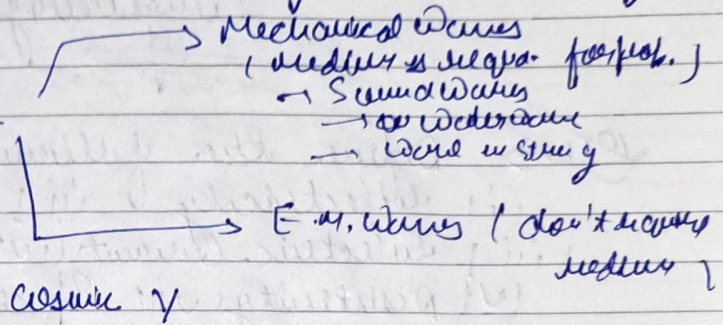 → Mechanical Waves
( medium is requr. for prop. )
→ Sound Waves
→ Water wave
→ Wave in string
→ E.M. Waves ( don't require
medium )
Cosmic γ